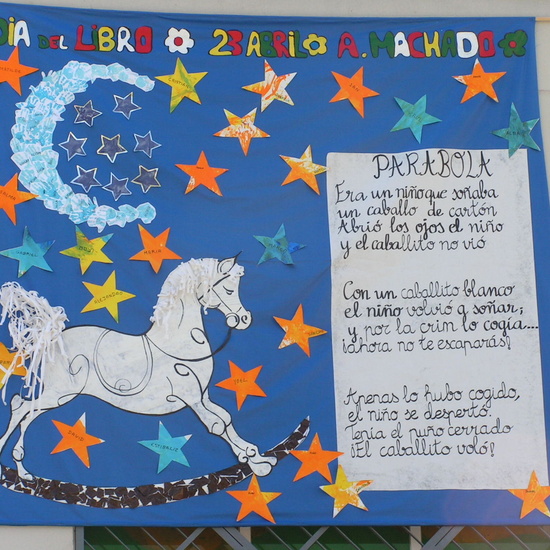 DIA DEL LIBRO 23 ABRIL A. MACHADO
PARABOLA
Era un niño que soñaba
un caballo de cartón
Abrió los ojos el niño
y el caballito no vió
Con un caballito blanco
el niño volvió a soñar;
y por la crin lo cogía...
¡ahora no te escaparás!
Apenas lo hubo cogido,
el niño se despertó.
Tenía el puño cerrado
¡El caballito voló!